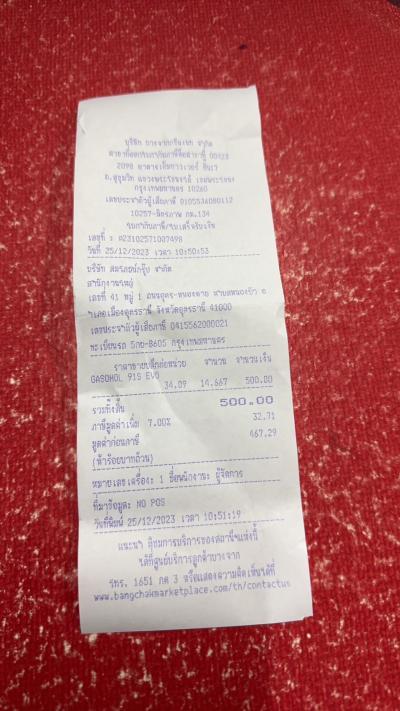 บริษัท บางจากกรีนเนท จำกัด
2098 อาคารเอ็มทาวเวอร์ ชั้น7
ถ.สุขุมวิท แขวงพระโขนงใต้ เขตพระโขนง
กรุงเทพมหานคร 10260
เลขประจำตัวผู้เสียภาษี 0105536080112
10257-มิตรภาพ กม.134
ใบกำกับภาษี/ใบเสร็จรับเงิน
เลขที่ : 023102571007498
วันที่ 25/12/2023 เวลา 10:50:53
บริษัท สมรภชน์กรุ๊ป จำกัด
สำนักงานใหญ่
เลขที่ 41 หมู่ 1 ถนนอุดร-หนองคาย ตำบลหนองบัว อ
ำเภอเมืองอุดรธานี จังหวัดอุดรธานี 41000
เลขประจำตัวผู้เสียภาษี 0415562000021
ทะเบียนรถ 5กย-8605 กรุงเทพมหานคร
ราคาขายปลีกต่อหน่วย จำนวน จำนวนเงิน
GASOHOL 91S EVO
34.09 14.667 500.00
รวมทั้งสิ้น 500.00
ภาษีมูลค่าเพิ่ม 7.00% 32.71
มูลค่าก่อนภาษี 467.29
(ห้าร้อยบาทถ้วน)
หมายเลขเครื่อง: 1 ชื่อพนักงาน: ผู้จัดการ
ที่มาข้อมูล: NO POS
วันที่พิมพ์ 25/12/2023 เวลา 10:51:19
แนะนำ ติชมการบริการของสถานีฯแห่งนี้
ได้ที่ศูนย์บริการลูกค้าบางจาก
โทร. 1651 กด 3 หรือแสดงความคิดเห็นได้ที่
www.bangchakmarketplace.com/th/contactus